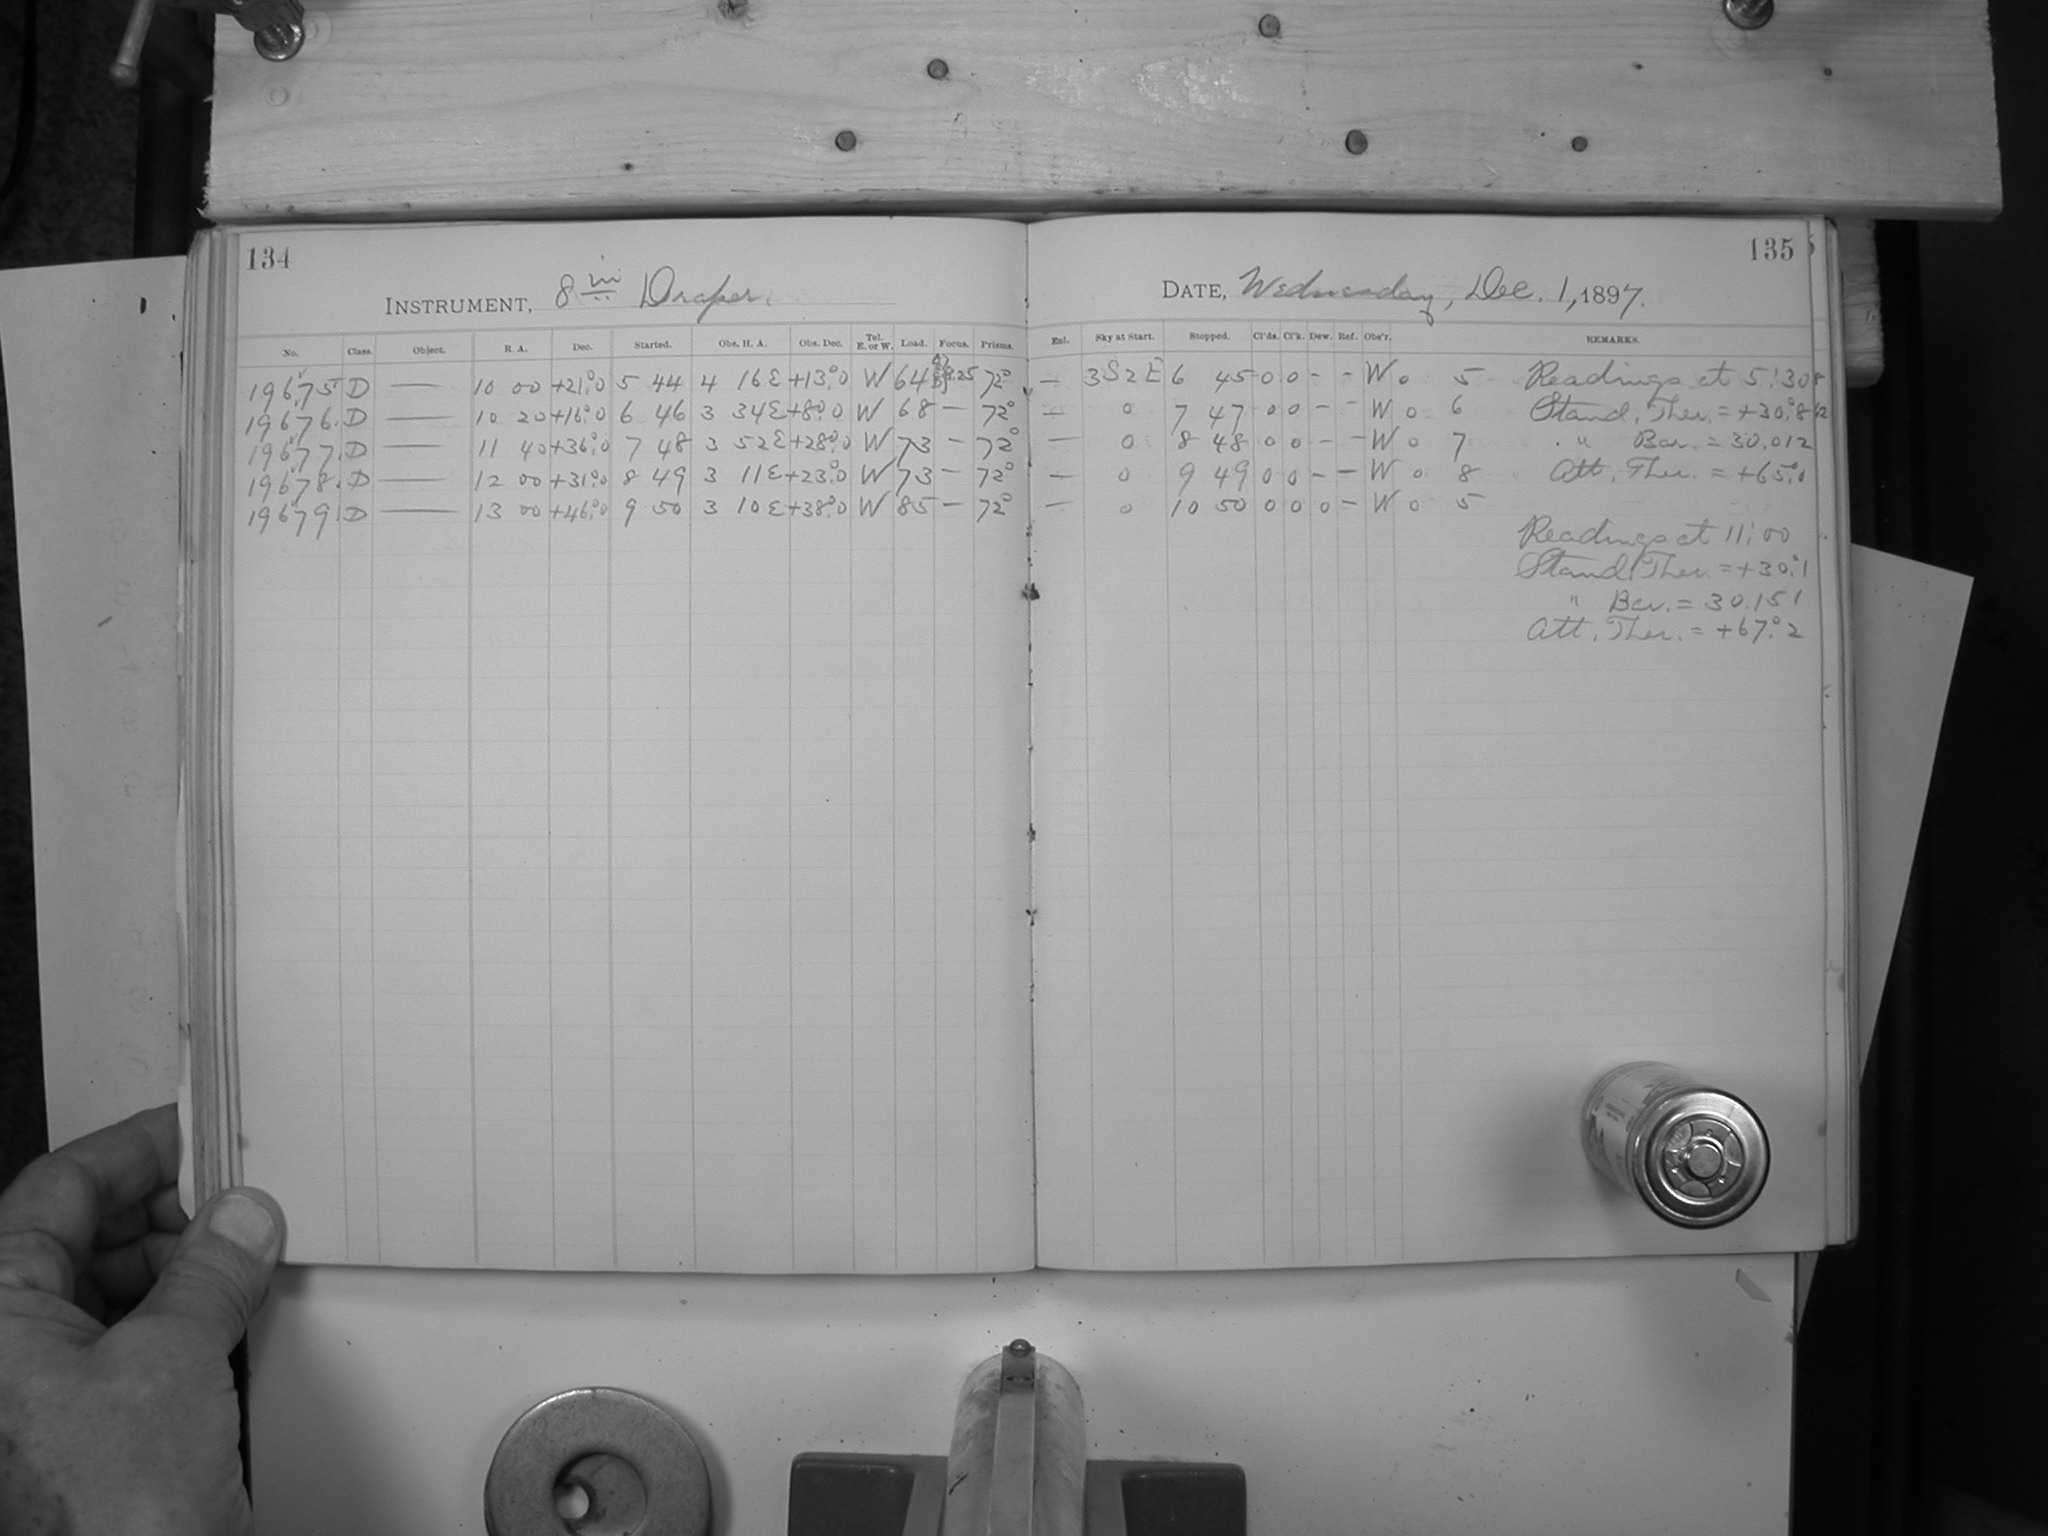 134
INSTRUMENT, 8 in Draper.
No. Class. Object. R. A. Dec. Started. Obs. H. A. Obs. Dec. Tel. E. or W. Load. Focus. Prisms.
19675 D — 10 00 +21°.0 5 44 4 16 E +13°.0 W 64 72°
19676. D — 10 20 +16°.0 6 46 3 34 E +8°.0 W 68 — 72°
19677. D — 11 40 +36°.0 7 48 3 52 E +28°.0 W 73 — 72°
19678. D — 12 00 +31°.0 8 49 3 11 E +23°.0 W 73 — 72°
19679 D — 13 00 +46°.0 9 50 3 10 E +38°.0 W 85 — 72°
135
DATE, Wednesday, Dec. 1, 1897.
Enl. Sky at Start. Stopped. Cl'ds. Cl'k. Dew. Ref. Obs'r. REMARKS.
— 3 S 2 E 6 45 0 0 – – W o 5 Readings at 5:30
— 0 7 47 0 0 – – W o 6 Stand. Ther. = +30°.8
— 0 8 48 0 0 – – W o 7 " Bar. = 30.012
— 0 9 49 0 0 – – W o 8 Att. Ther. = +65°.0
— 0 10 50 0 0 0 – W o 5
Readings at 11:00
Stand. Ther. = +30°.1
" Bar. = 30.151
Att. Ther. = +67°.2